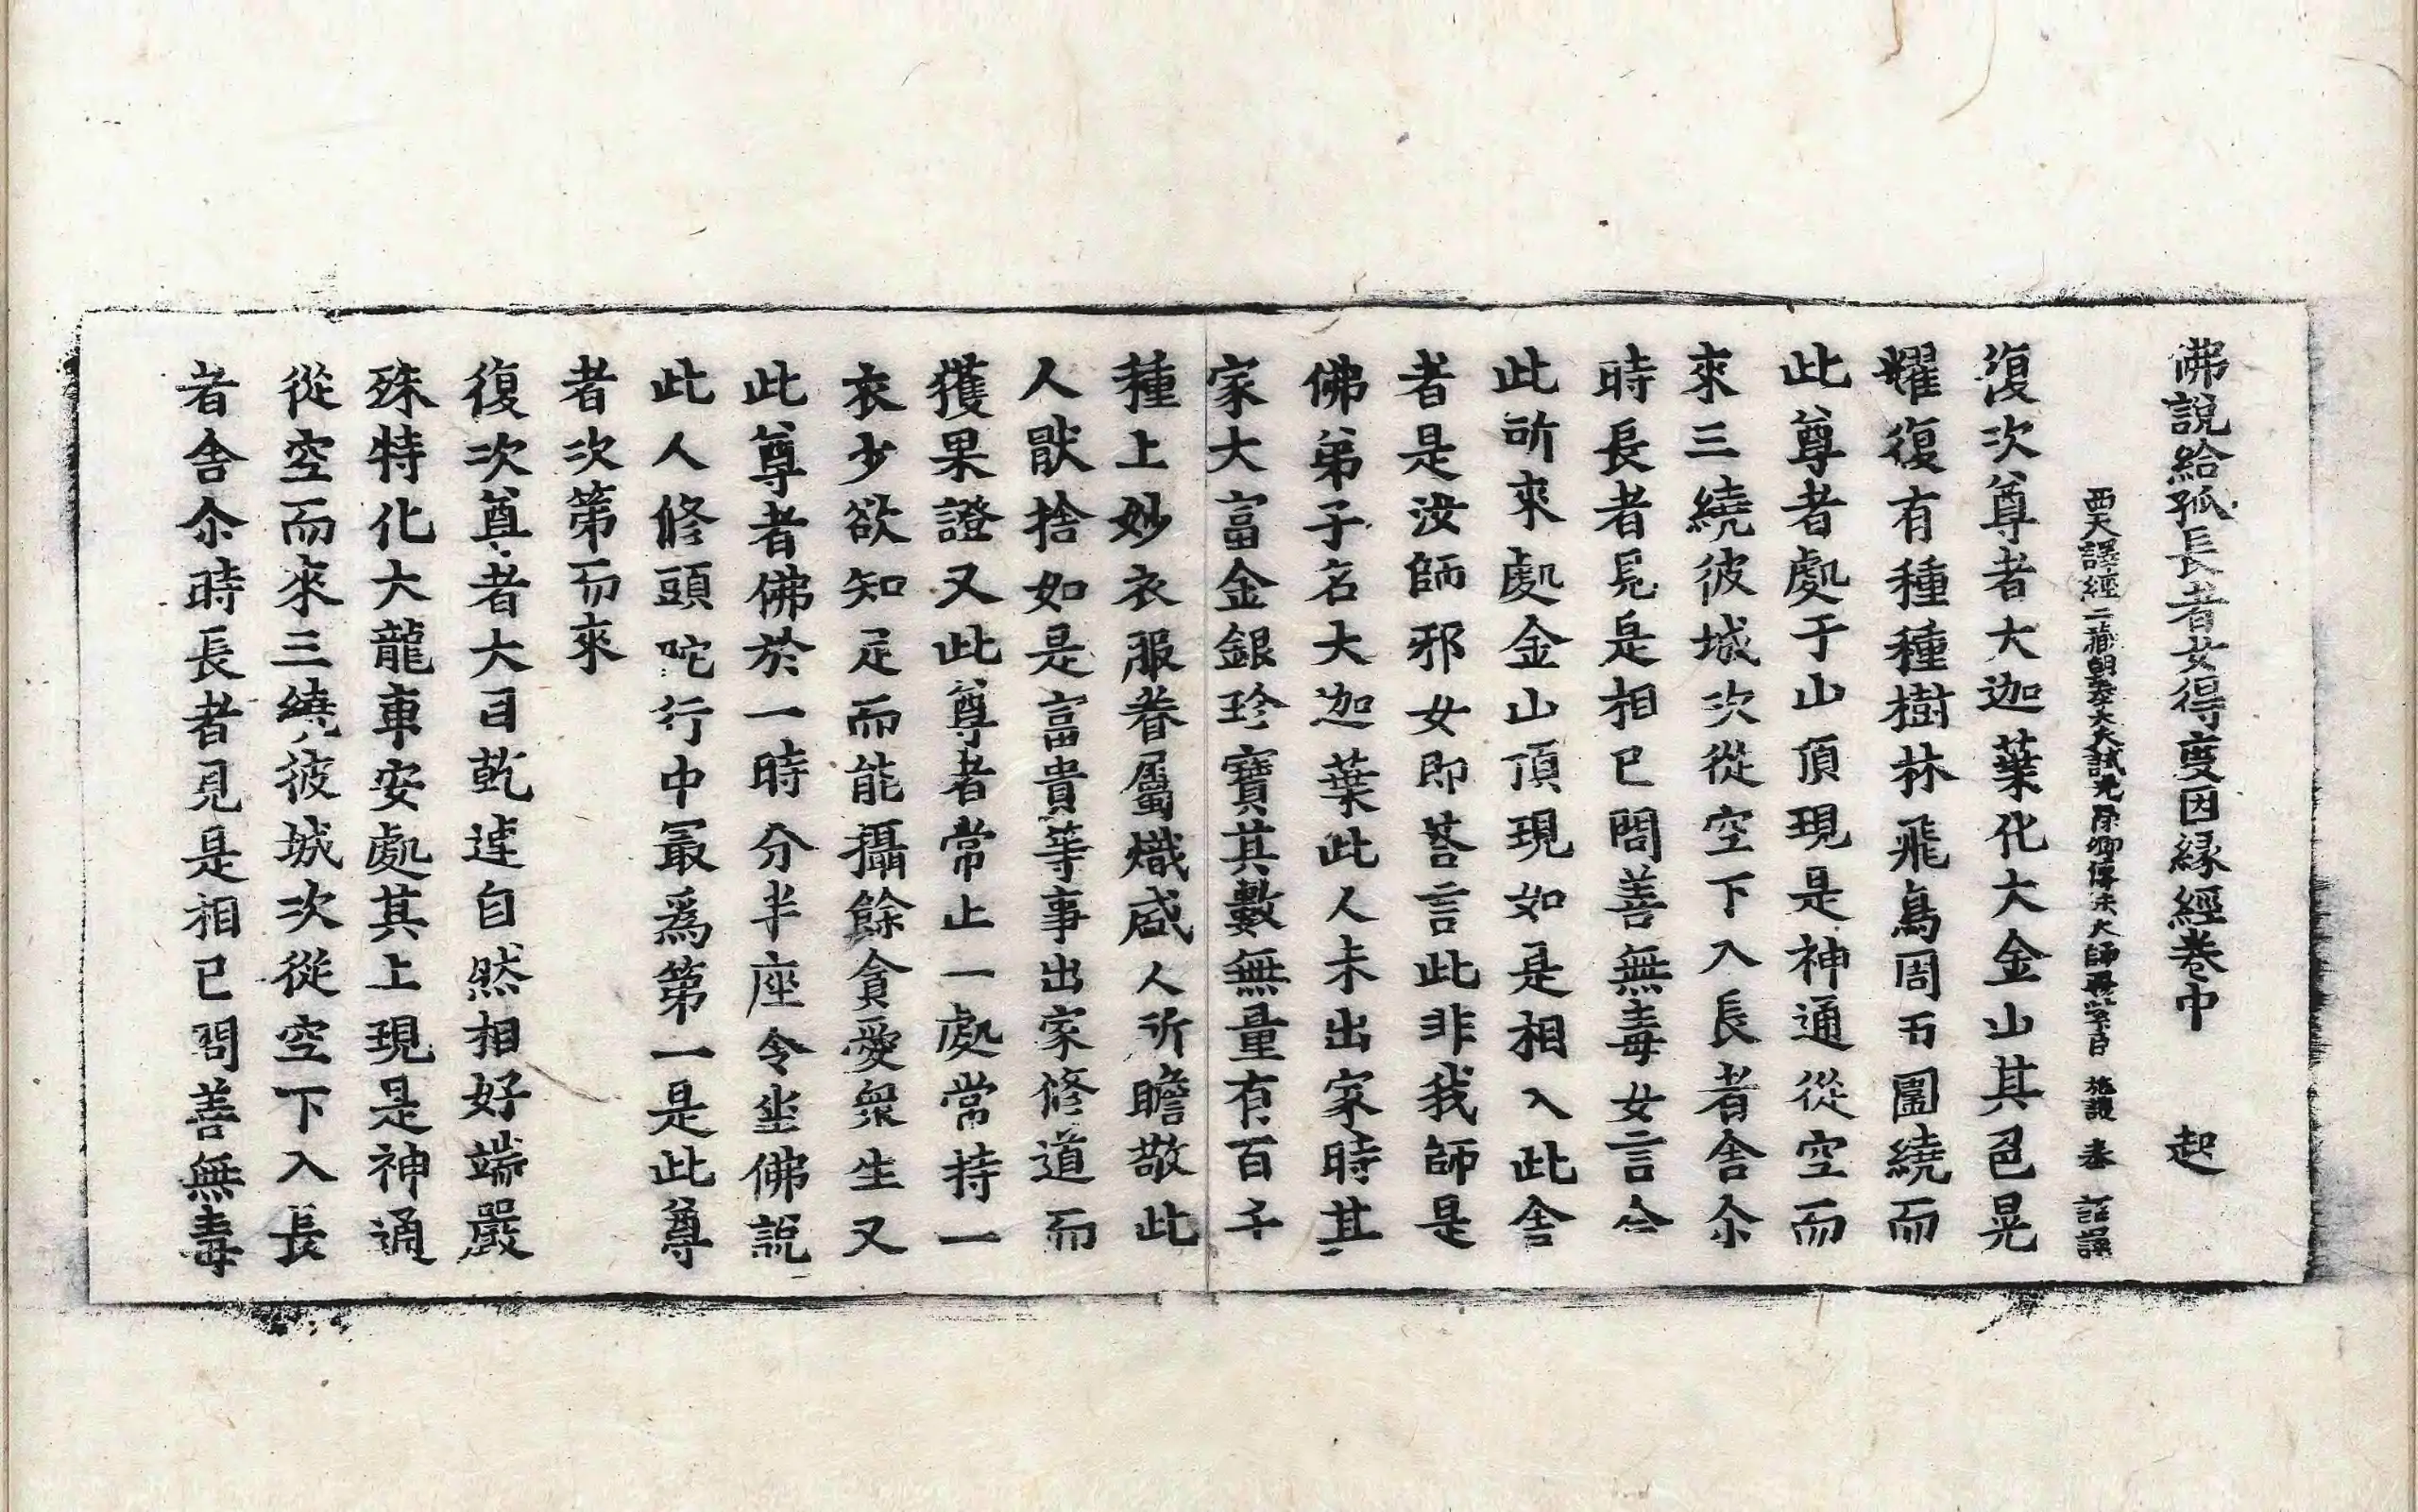 佛說給孤長者女得度因緣經卷中 起
西天譯經三藏朝奉大夫試光祿卿傳法大師賜紫臣 施護 奉 詔譯
復次尊者大迦葉化大金山其色晃
耀復有種種樹林飛鳥周帀圍繞而
此尊者處于山頂現是神通從空而
來三繞彼城次從空下入長者舍尒
時長者見是相已問善無毒女言今
此所來處金山頂現如是相入此舍
者是汝師邪女即荅言此非我師是
佛弟子名大迦葉此人未出家時其
家大富金銀珍寶其數無量有百千
種上妙衣服眷屬熾盛人所瞻敬此
人猒捨如是富貴等事出家修道而
獲果證又此尊者常止一處常持一
衣少欲知足而能攝餘貪愛衆生又
此尊者佛於一時分半座令坐佛說
此人修頭陀行中最爲第一是此尊
者次第而來
復次尊者大目乾連自然相好端嚴
殊特化大龍車安處其上現是神通
從空而來三繞彼城次從空下入長
者舍尒時長者見是相已問善無毒